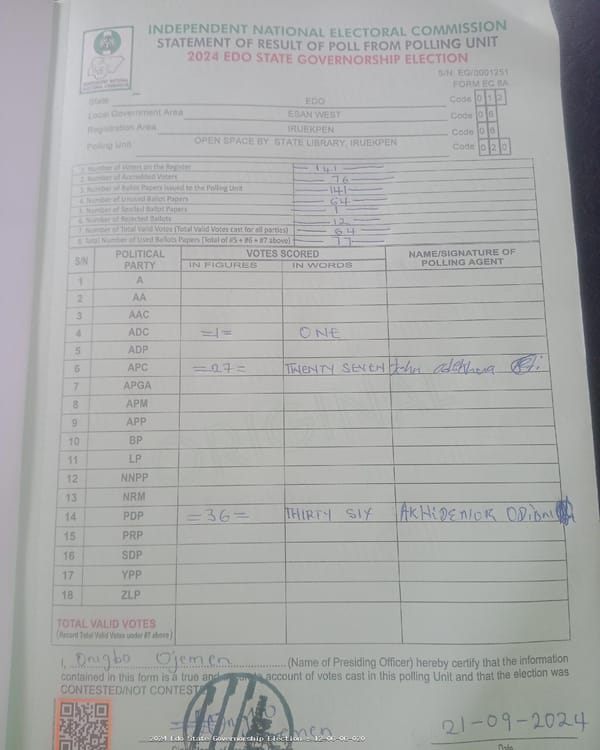 INDEPENDENT NATIONAL ELECTORAL COMMISSION
STATEMENT OF RESULT OF POLL FROM POLLING UNIT
2024 EDO STATE GOVERNORSHIP ELECTION
S/N: EG/0001251
FORM EC 8A
State EDO Code 012
Local Government Area ESAN WEST Code 06
Registration Area IRUEKPEN Code 06
Polling Unit OPEN SPACE BY STATE LIBRARY, IRUEKPEN Code 020
1. Number of Voters on the Register 141
2. Number of Accredited Voters 76
3. Number of Ballot Papers Issued to the Polling Unit 141
4. Number of Unused Ballot Papers 64
5. Number of Spoiled Ballot Papers 1
6. Number of Rejected Ballots 12
7. Number of Total Valid Votes (Total Valid Votes cast for all parties) 64
8. Total Number of Used Ballots Papers (Total of #5 + #6 + #7 above) 77
S/N POLITICAL PARTY VOTES SCORED NAME/SIGNATURE OF POLLING AGENT
IN FIGURES IN WORDS
1 A
2 AA
3 AAC
4 ADC =1= ONE
5 ADP
6 APC =27= TWENTY SEVEN John
7 APGA
8 APM
9 APP
10 BP
11 LP
12 NNPP
13 NRM
14 PDP =36= THIRTY SIX
15 PRP
16 SDP
17 YPP
18 ZLP
TOTAL VALID VOTES
(Record Total Valid Votes under #7 above)
I, Onigbo Ojemen (Name of Presiding Officer) hereby certify that the information
contained in this form is a true and account of votes cast in this polling Unit and that the election was
CONTESTED/NOT CONTEST
21-09-2024
2024 Edo State Governorship Election : 12-06-06-020
Date